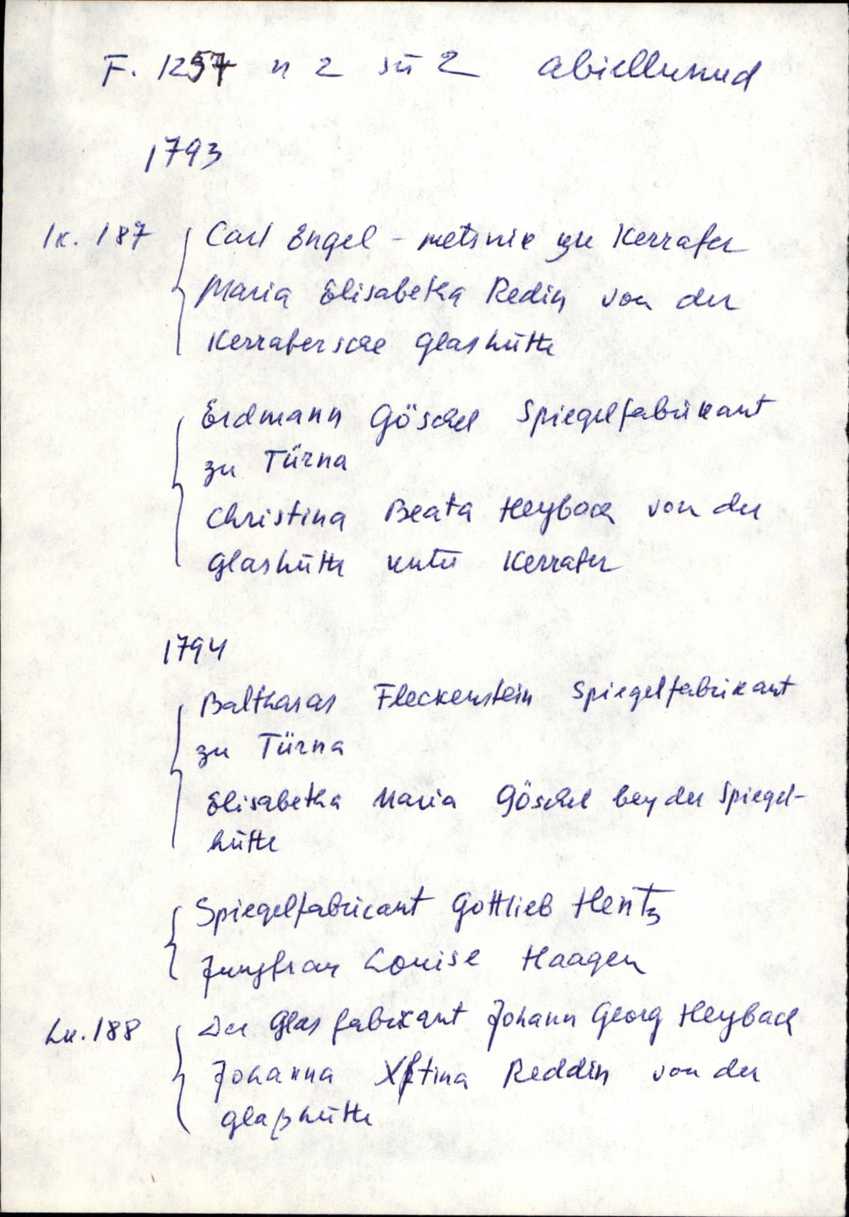 F. 1257 n 2 sü 2 abiellunud
1793
lk. 187 Carl Engel - zu Kerrafer
Maria Elisabetha Redin von der
Kerrafersche Glashütte
Erdmann Göschel Spiegelfabrikant
zu Türna
Christina Beata Heyback von der
Glashütte unter Kerrafer
1794
Balthasar Fleckenstein Spiegelfabrikant
zu Türna
Elisabetha Maria Göschel bey der Spiegel-
hütte
Spiegelfabricant Gottlieb Hentz
Jungfrau Louise Haagen
Lk. 188 Der Glas fabrikant Johann Georg Heyback
Johanna Xstina Reddin von der
Glaßhütte